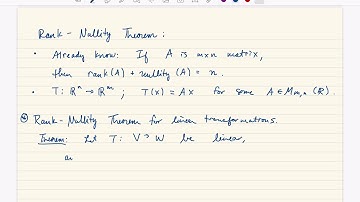 Rank - Nullity Theorem :
• Already know: If A is m×n matrix,
then rank(A) + nullity (A) = n.
• T: ℝⁿ → ℝᵐ ; T(x) = Ax for some A ∈ Mₘ,ₙ (ℝ).
Rank - Nullity Theorem for linear transformations.
Theorem: Let T: V → W be linear,
an